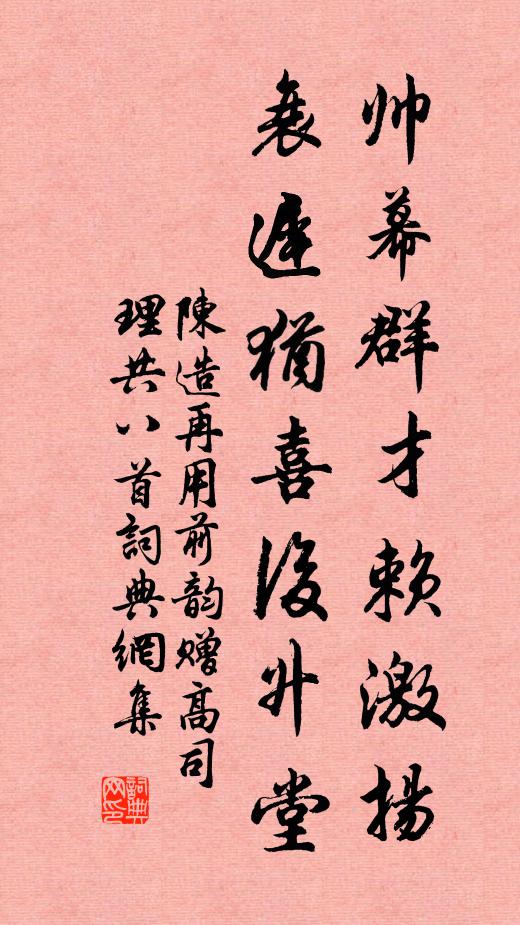 帅幕群才赖激揚
衰遲猶喜後升堂
陳造再用前韵赠高司
理共八首詞典網集
詞典网印